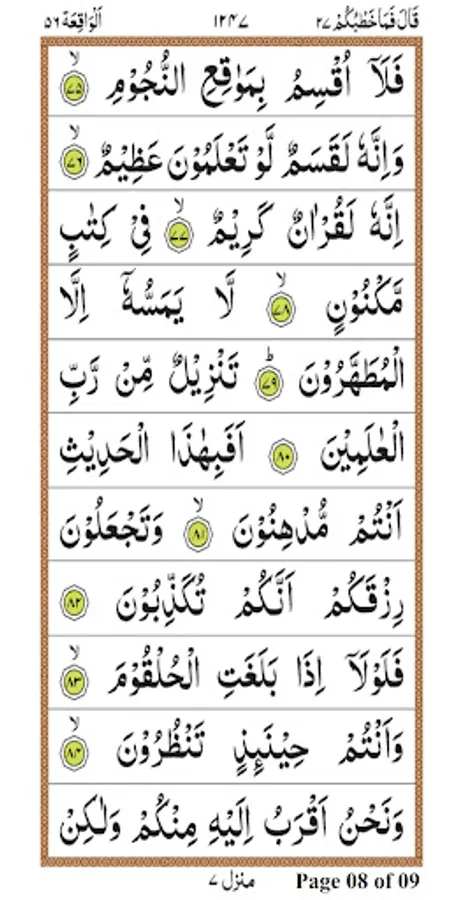 قَالَ فَمَا خَطْبُكُمْ ٢٧ ١٢٤٧ اَلْوَاقِعَة ٥٦
فَلَاۤ اُقْسِمُ بِمَوٰقِعِ النُّجُوْمِ ۙ‏﴿۷۵﴾
وَاِنَّهٗ لَقَسَمٌ لَّوْ تَعْلَمُوْنَ عَظِيْمٌ ۙ‏﴿۷۶﴾
اِنَّهٗ لَقُرْاٰنٌ كَرِيْمٌ ۙ‏﴿۷۷﴾ فِىْ كِتٰبٍ
مَّكْنُوْنٍ ۙ‏﴿۷۸﴾ لَّا يَمَسُّهٗۤ اِلَّا
الْمُطَهَّرُوْنَ ؕ‏﴿۷۹﴾ تَنْزِيْلٌ مِّنْ رَّبِّ
الْعٰلَمِيْنَ‏ ﴿۸۰﴾ اَفَبِهٰذَا الْحَدِيْثِ
اَنْتُمْ مُّدْهِنُوْنَ ۙ‏﴿۸۱﴾ وَتَجْعَلُوْنَ
رِزْقَكُمْ اَنَّكُمْ تُكَذِّبُوْنَ‏ ﴿۸۲﴾
فَلَوْلَاۤ اِذَا بَلَغَتِ الْحُلْقُوْمَ ۙ‏﴿۸۳﴾
وَاَنْتُمْ حِيْنَئِذٍ تَنْظُرُوْنَ ۙ‏﴿۸۴﴾
وَنَحْنُ اَقْرَبُ اِلَيْهِ مِنْكُمْ وَلٰكِنْ
منزل ٧ Page 08 of 09